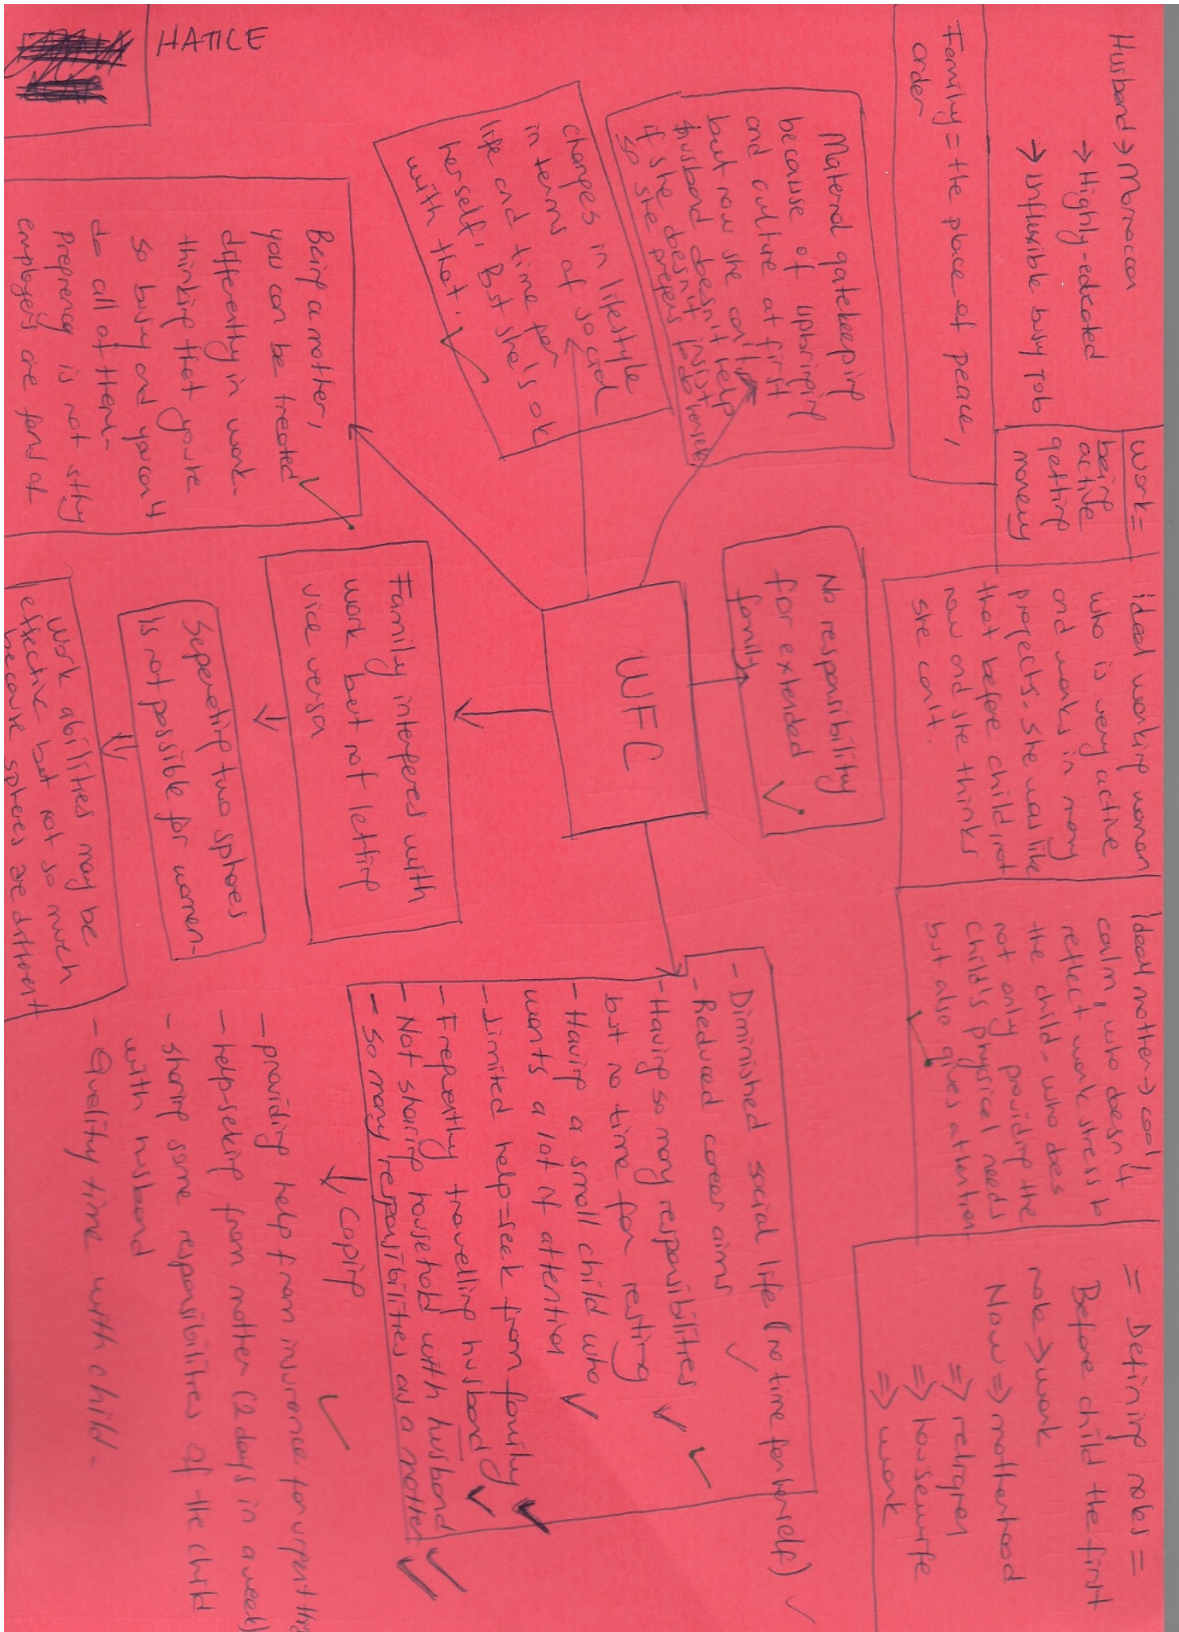 HATICE
Husband → Moroccan
→ Highly-edcated
→ unfluxible busy job
Family = the place of peace,
order
work =
being
active
getting
money
ideal working women
who is very active
and works in many
projects. She was like
that before child, not
now and she thinks
she can't.
Ideal mother → cool,
calm, who doesn't
reflect work stress to
the child - who does
not only providing the
child's physical needs
but also gives attention
= Defining roles =
Before child the first
role → work
Now ⇒ motherhood
⇒ religion
⇒ housewife
⇒ work
Maternal gatekeeping
because of upbringing
and culture at first
but now she can't
husband doesn't help
if she doesn't insist
so she prefers to do herself
changes in lifestyle
in terms of social
life and time for
herself. But she's ok
with that.
Being a mother,
you can be treated
differently in work-
thinking that you're
so busy and you can't
do all of them-
Pregnancy is not sthy
employers are fond of
No responsibility
for extended
family
WFC
Family interferes with
work but not letting
vice versa
Seperating two spheres
is not possible for women-
Work abilities may be
effective but not so much
because spheres are different
- Diminished social life (no time for herself)
- Reduced career aims
- Having so many responsibilities
but no time for resting
- Having a small child who
wants a lot of attention
- Limited help-seek from family
- Frequently travelling husband
- Not sharing household with husband
- So many responsibilities as a mother
↓ Coping
- providing help from insurance for urgent thing
- help-seking from mother (2 days in a week)
- sharing some responsibilities of the child
with husband
- Quality time with child-